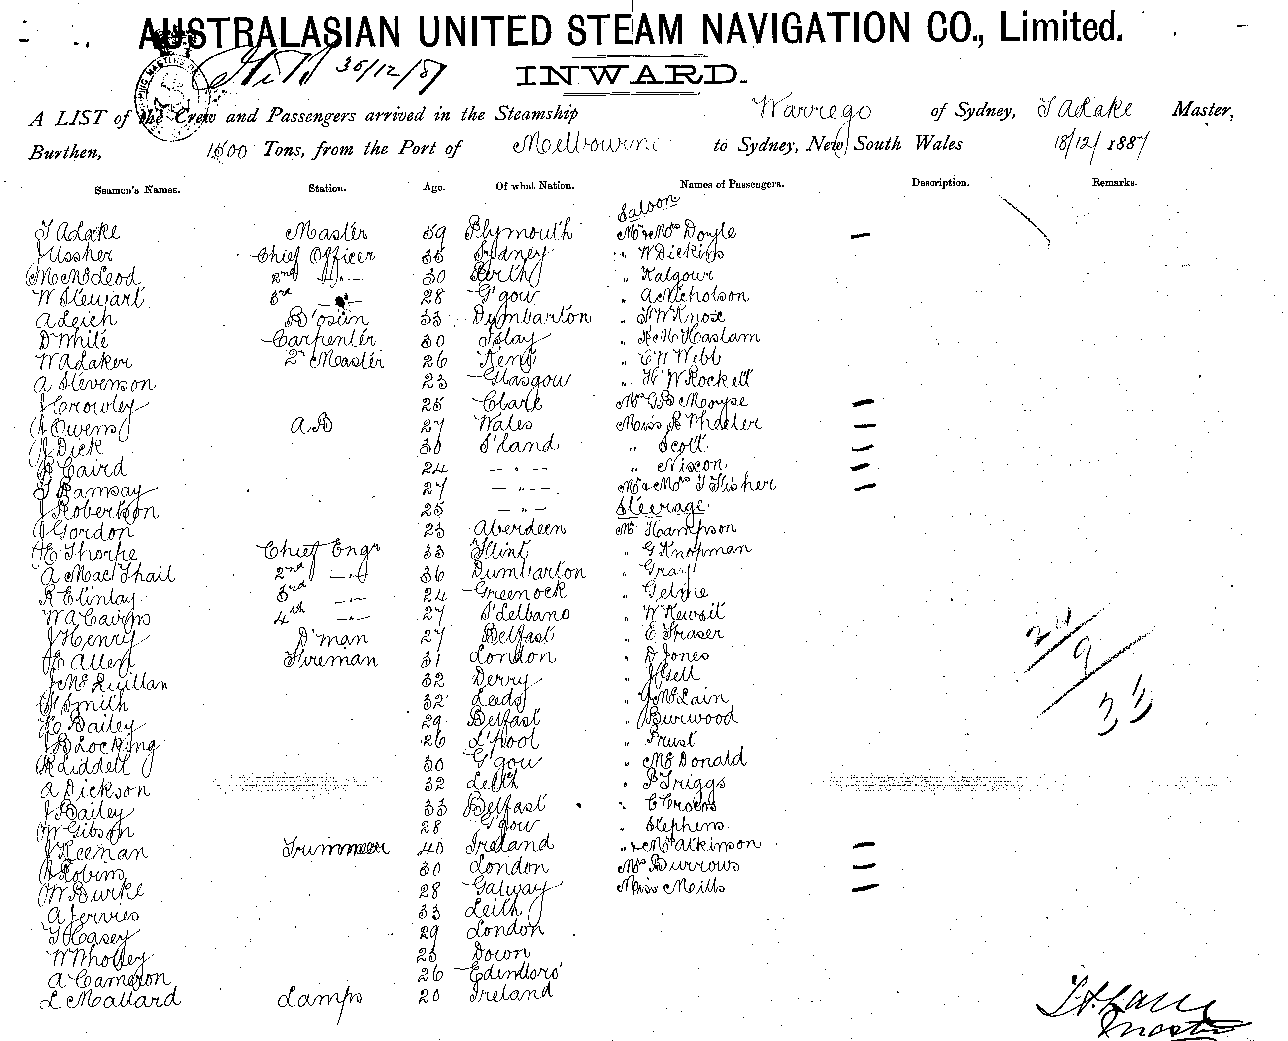 AUSTRALASIAN UNITED STEAM NAVIGATION CO., Limited.
INWARD.
A LIST of the Crew and Passengers arrived in the Steamship Warrego of Sydney, Master,
Burthen, 1500 Tons, from the Port of Melbourne to Sydney, New South Wales 18/12/1887
Seamen's Names. Station. Age. Of what Nation. Names of Passengers. Description. Remarks.
Saloon
Master 59 Plymouth Mr & Mrs Doyle —
J Ussher Chief Officer 35 Sydney " W Dickins
McLeod 2nd " 30 Perth " Kalgour
W Stewart 3rd " 28 G'gow " A Nicholson
A Leich B'osun 33 Dumbarton " Knox
D White Carpenter 30 Islay " Haslam
W A Laker 2nd Master 26 Kent " Webb
A Stevenson 23 Glasgow " H W Rockett
J Crowley 25 Clare Mrs G B Moyse —
J Owens A B 27 Wales Miss R Wheeler —
J Dick 30 S'land " Scott —
R Caird 24 " Nixon —
T Ramsay 27 " Mr & Mrs T Fisher —
J Robertson 25 " Steerage
J Gordon 23 Aberdeen Mr Hampson
H E Thorpe Chief Engr 33 Flint " G Knopman
A MacPhail 2nd " 36 Dumbarton " Gray
R E Linlay 3rd " 24 Greenock "
W A Cairns 4th " 27 " W
J Henry D'man 27 Belfast " E Fraser
H Allen Fireman 31 London " D Jones
J McQuillan 32 Derry " J Gell
Smith 32 Leeds " J McLain
H Bailey 29 Belfast " J Burwood
J B Locking 26 L'pool " Prust
R Liddell 30 G'gow " McDonald
A Dickson 32 Leith " P Griggs
J Bailey 33 Belfast "
W Gibson 28 G'gow " Stephens
J Keenan Trimmer 40 Ireland " & Mrs Atkinson —
J Robins 30 London Mrs Burrows —
W Burke 28 Galway Miss Mills —
A Jervies 33 Leith
T Casey 29 London
W Wholley 23 Down
A Cameron 26 Edinboro'
L Mallard Lamps 20 Ireland
24
9
33
Master